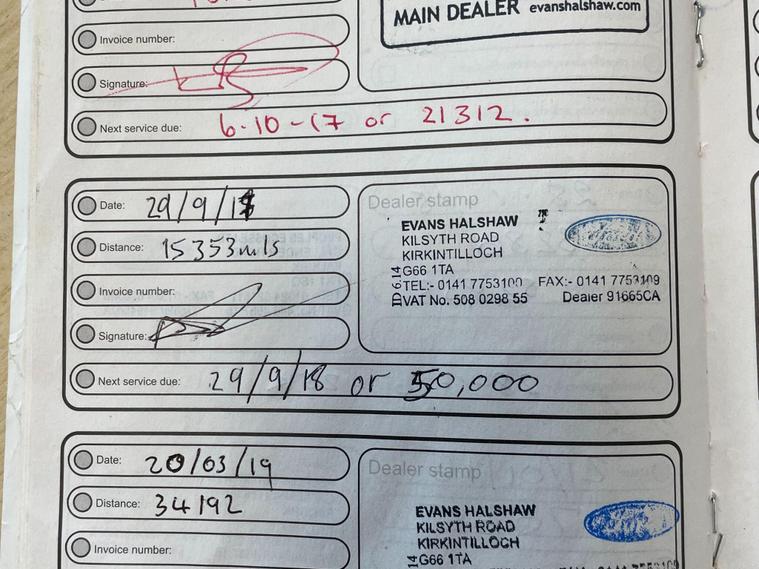 MAIN DEALER evanshalshaw.com
Invoice number:
Signature:
Next service due: 6-10-17 or 21312.
Date: 29/9/1
Dealer stamp
EVANS HALSHAW
KILSYTH ROAD
KIRKINTILLOCH
G66 1TA
TEL:- 0141 7753100 FAX:- 0141 7753109
VAT No. 508 0298 55 Dealer 91665CA
Distance: 15353mls
Invoice number:
Signature:
Next service due: 29/9/18 or 50,000
Date: 20/03/19
Dealer stamp
Distance: 34192
EVANS HALSHAW
KILSYTH ROAD
KIRKINTILLOCH
G66 1TA
Invoice number: